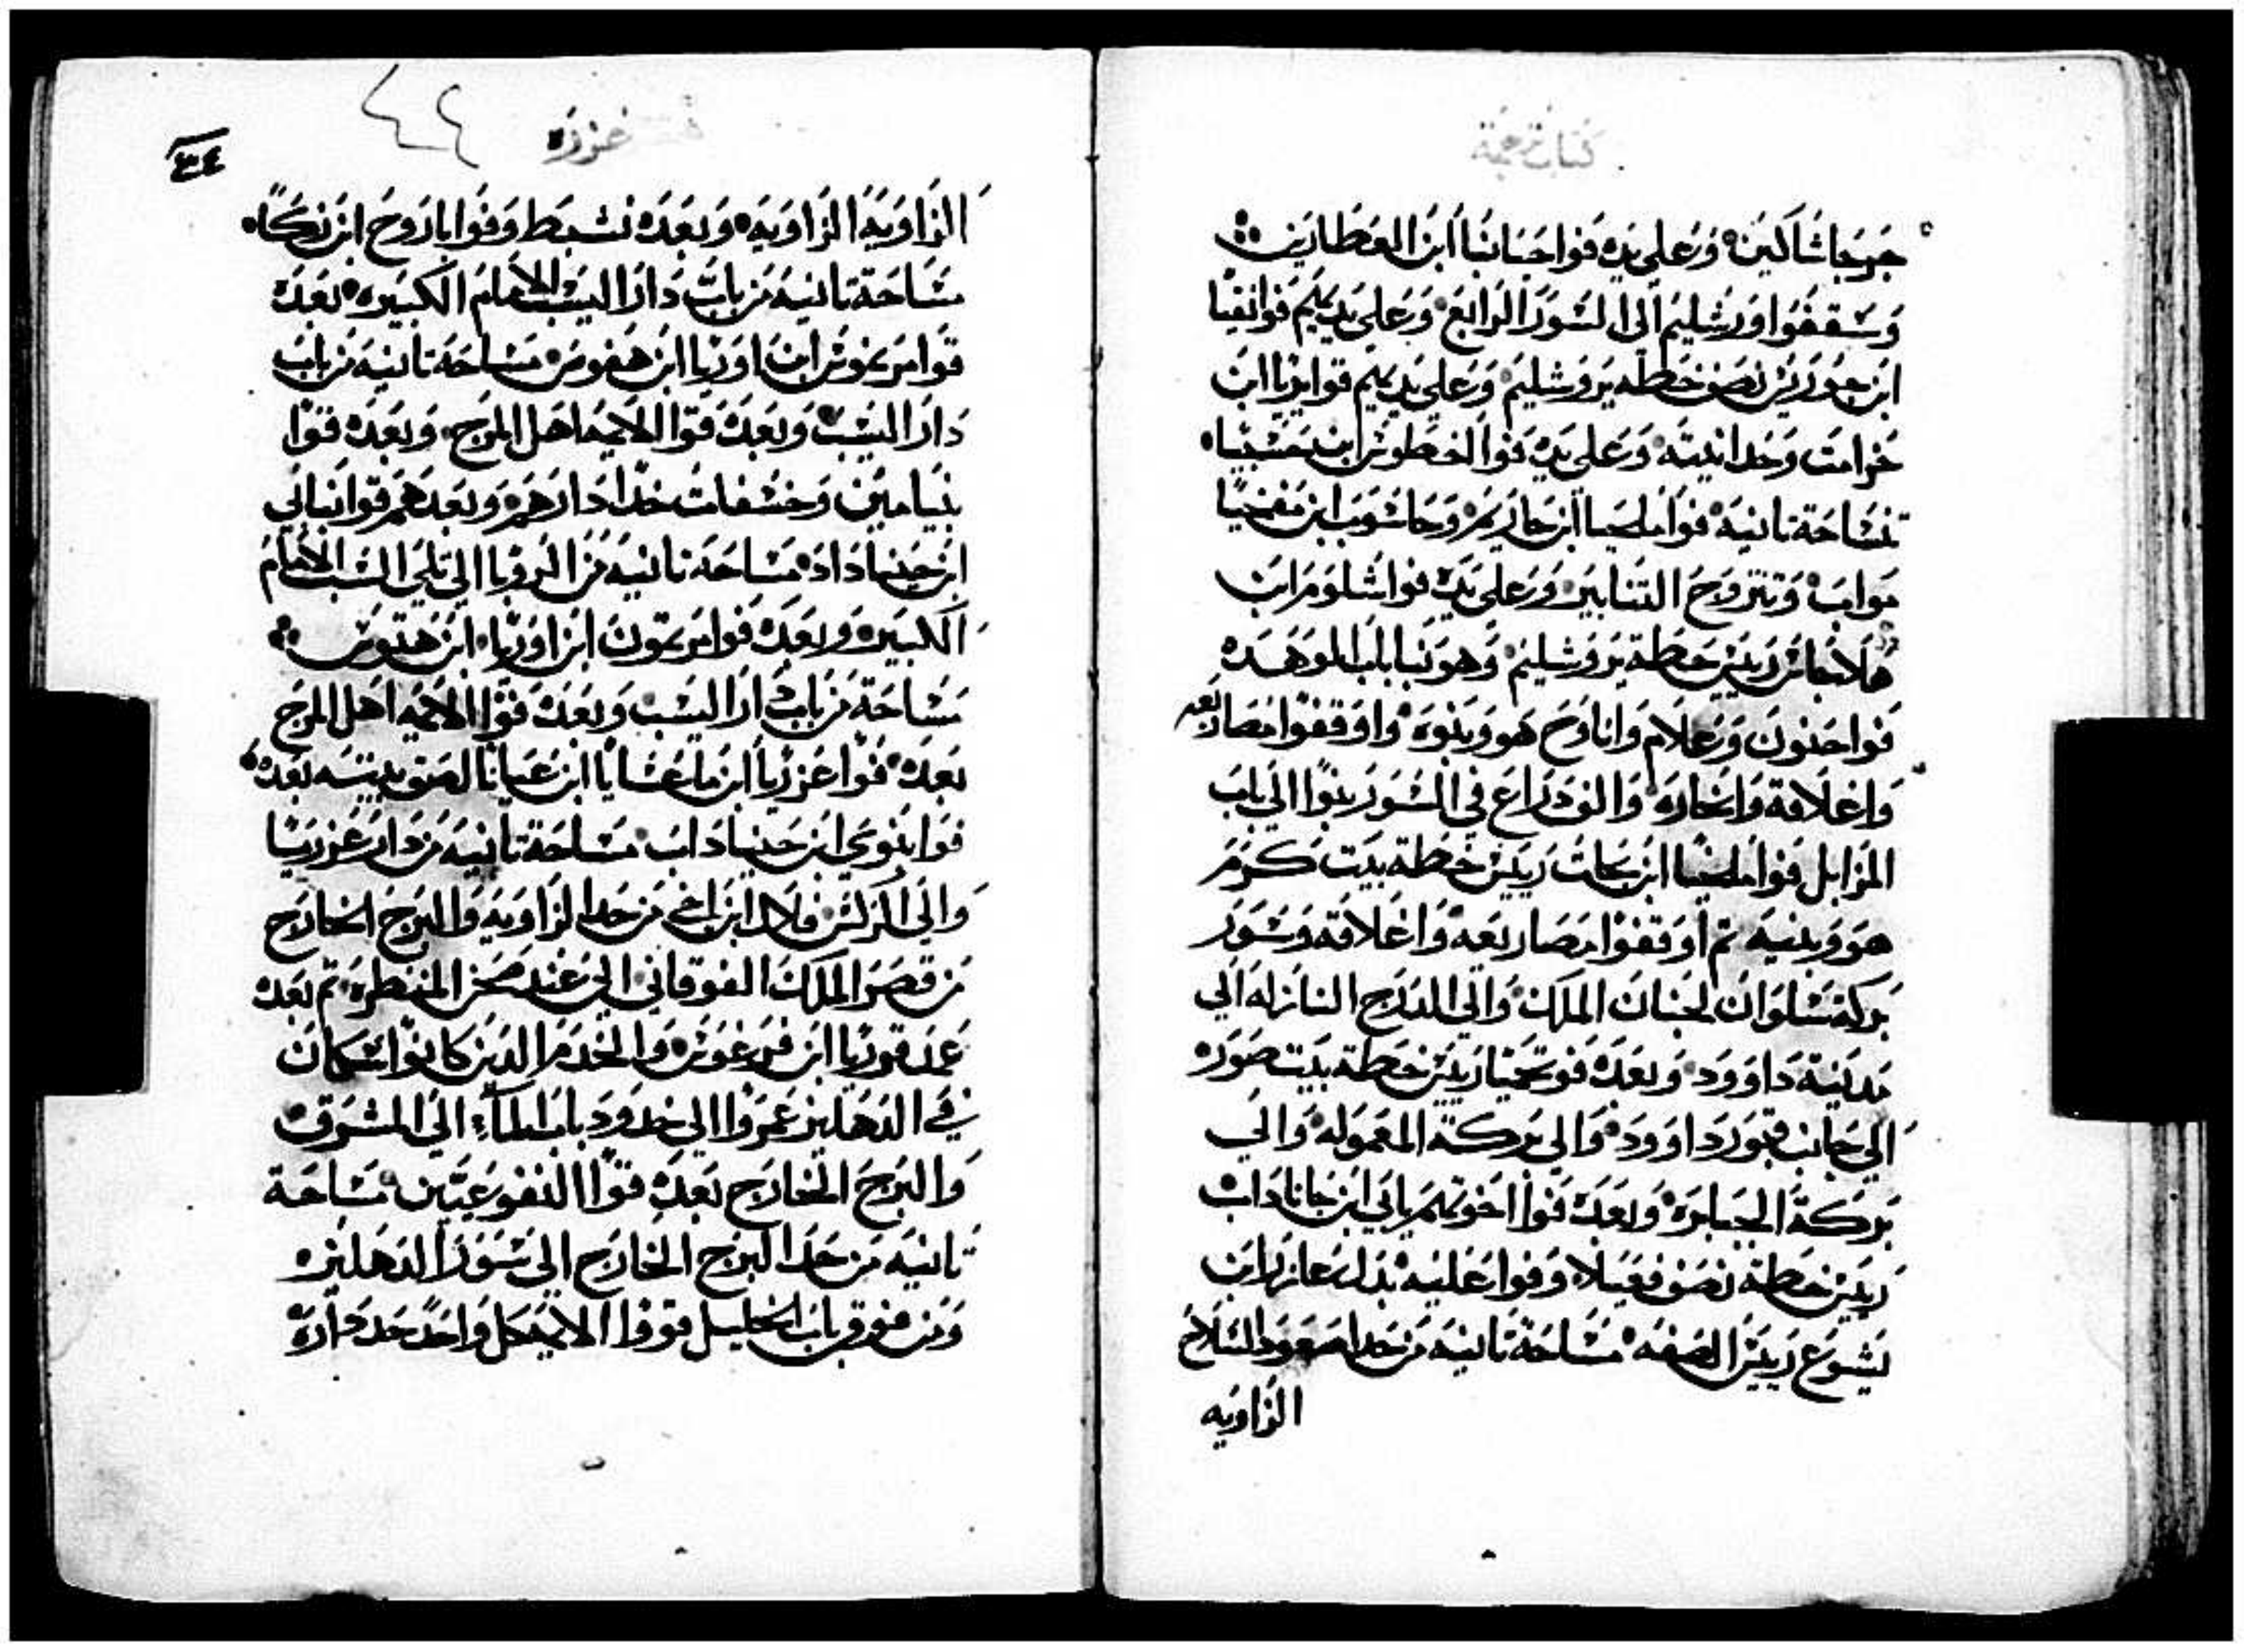 كتاب ترجمة
جرجاشالين وعلى يده قوا حنانيا ابن العطارين
وسقفوا اورشليم الى السور الرابع وعلى يديهم قوا نفيا
ابن حور ريس نصف خطة يروشليم وعلى يديهم قوا يزيا ابن
خرامت وحدا بيته وعلى يده قوا الخطوش ابن حسبنيا
مساحة تانيه قوا ملحيا ابن حاريم وحاشوب ابن مفحيا
مواب وتتروج التنانير وعلى يده قوا شلوم ابن
هلاحاش ريس خطة يروشليم وهو بناباب الموهده
قوا حنون وعلام واناوح هو وبنوه واوقفوا مصاريعه
واغلاقة وانجاره والف دراع في السور بنوا الى باب
المزابل قوا ملحيا ابن بحات ريس خطة بيت كرم
هو وبنيه تم اوقفوا مصاريعه واغلاقه وسور
بركة سلوان لجنان الملك والى الدرج النازله الى
مدينة داوود وبعده قو تحميا ريس خطة بيت صور
الى جانب قبور داوود والى بركة المعموله والى
بركة الجبابره وبعده قوا اخوتهم باي ابن حاناداب
ريس خطة نصف قعيلا وقوا عليه بداء عازر ابن
يشوع ريس الصفه مساحة تانيه من حدا صعود السلاح
الزاويه
٣٤
عزره
الزاوية الزاويه وبعده نشبط وقوا باروح ابن زكا
مساحة تانيه من باب دار اليشب الامام الكبير بعده
قوا مريموش ابن اوريا ابن هقوص مساحه تانيه من باب
دار اليشب وبعده قوا الايمه اهل المرج وبعده قوا
بنيامين وحشفات حدا دارهم وبعدهم قوا بناي
ابن حنيا داد مساحه تانيه من الروبا الى تلي اليشب الامام
الكبير وبعده قوا مريموت ابن اوريا ابن هقوص
مساحة من باب دار اليشب وبعده قوا الايمه اهل المرج
بعده قوا عزريا ابن ماعشايا ابن عنانا لصق بيته بعده
قوا بنوي ابن حنيا داب مساحة تانيه من دار عزريا
والى الركن فلال ابن اخي من حد الزاويه والبرج الخارج
من قصر الملك الفوقاني الى عند صخر المنطره تم بعده
عم قوريا ابن فرعوش والخدم الدين كانوا سكان
في الدهليز عمروا الى حدود باب الماء الى المشرق
والبرج الخارج بعده قوا النفوعيين مساحة
تانيه من حد البرج الخارج الى سور الدهليز
ومن فوق باب الخليل قووا الايمه كل واحد حد داره